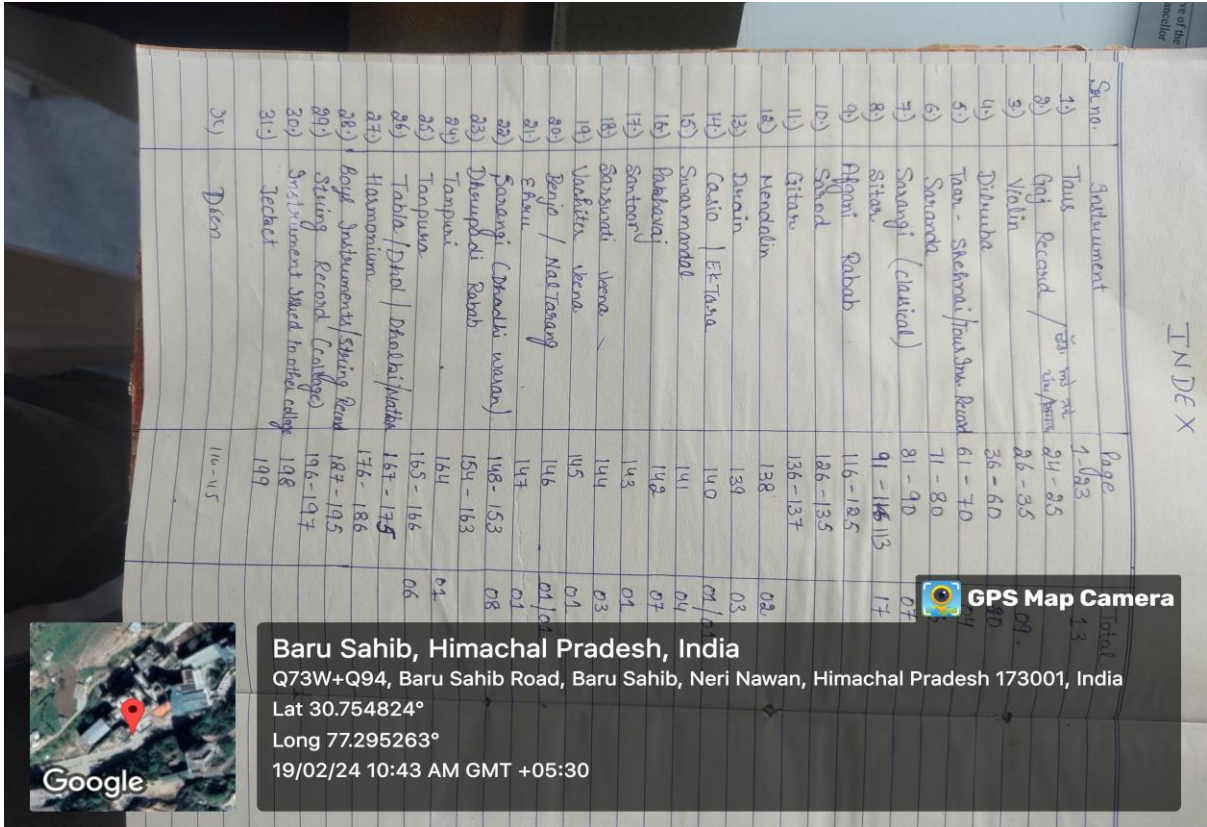 ve of the
ancellor
INDEX
Sr no. Instrument Page Total
1.) Taus 1-23 13
2.) Gaj Record / 24-25
3.) Violin 26-35 09
4.) Dilruba 36-60
5.) Taar - Shehnai/Taus Ins. Record 61-70 04
6.) Saranda 71-80
7.) Sarangi (classical) 81-90 07
8.) Sitar 91-113 17
9.) Afgani Rabab 116-125
10.) Sarod 126-135
11.) Gitar 136-137
12.) Mendolin 138 02
13.) Dwain 139 03
14.) Casio / Ek Tara 140 01/01
15.) Swarmandal 141 04
16.) Pakhavaj 142 07
17.) Santoor 143 01
18.) Sarswati Veena 144 03
19.) Vachiter Veena 145 01
20.) Benjo / Nal Tarang 146 01/01
21.) 147 01
22.) Sarangi (Dhadhi waran) 148-153 08
23.) Dhrupadi Rabab 154-163
24.) Tanpuri 164 01
25.) Tanpura 165-166 06
26.) Tabla/Dhol/Dholki/ 167-175
27.) Harmonium 176-186
28.) Boyl Instruments/String Record 187-195
29.) String Record (collage) 196-197
30.) Instrument Issued to other collage 198
31.) 199
114-115
GPS Map Camera
Baru Sahib, Himachal Pradesh, India
Q73W+Q94, Baru Sahib Road, Baru Sahib, Neri Nawan, Himachal Pradesh 173001, India
Lat 30.754824°
Long 77.295263°
19/02/24 10:43 AM GMT +05:30
Google